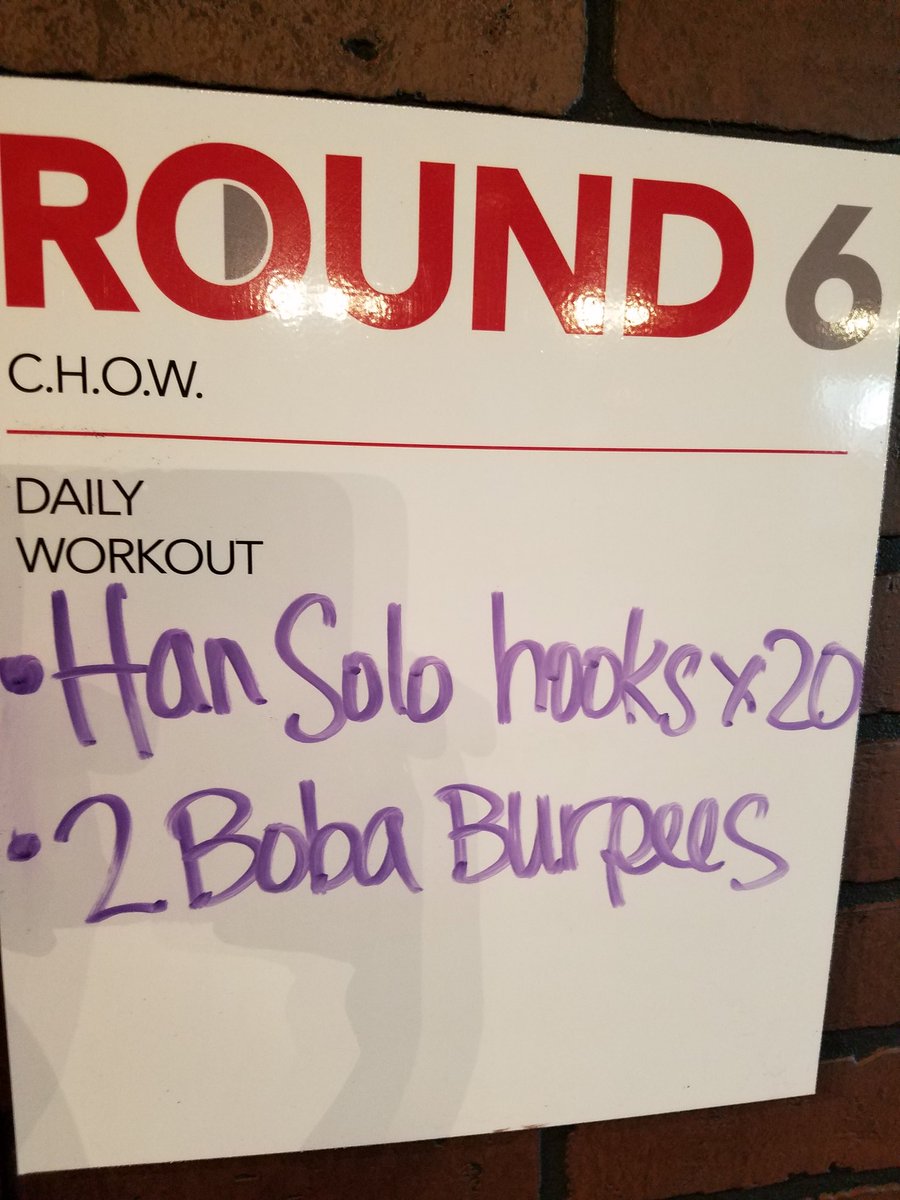 ROUND 6
C.H.O.W.
DAILY
WORKOUT
• Han Solo hooks x20
• 2 Boba Burpees